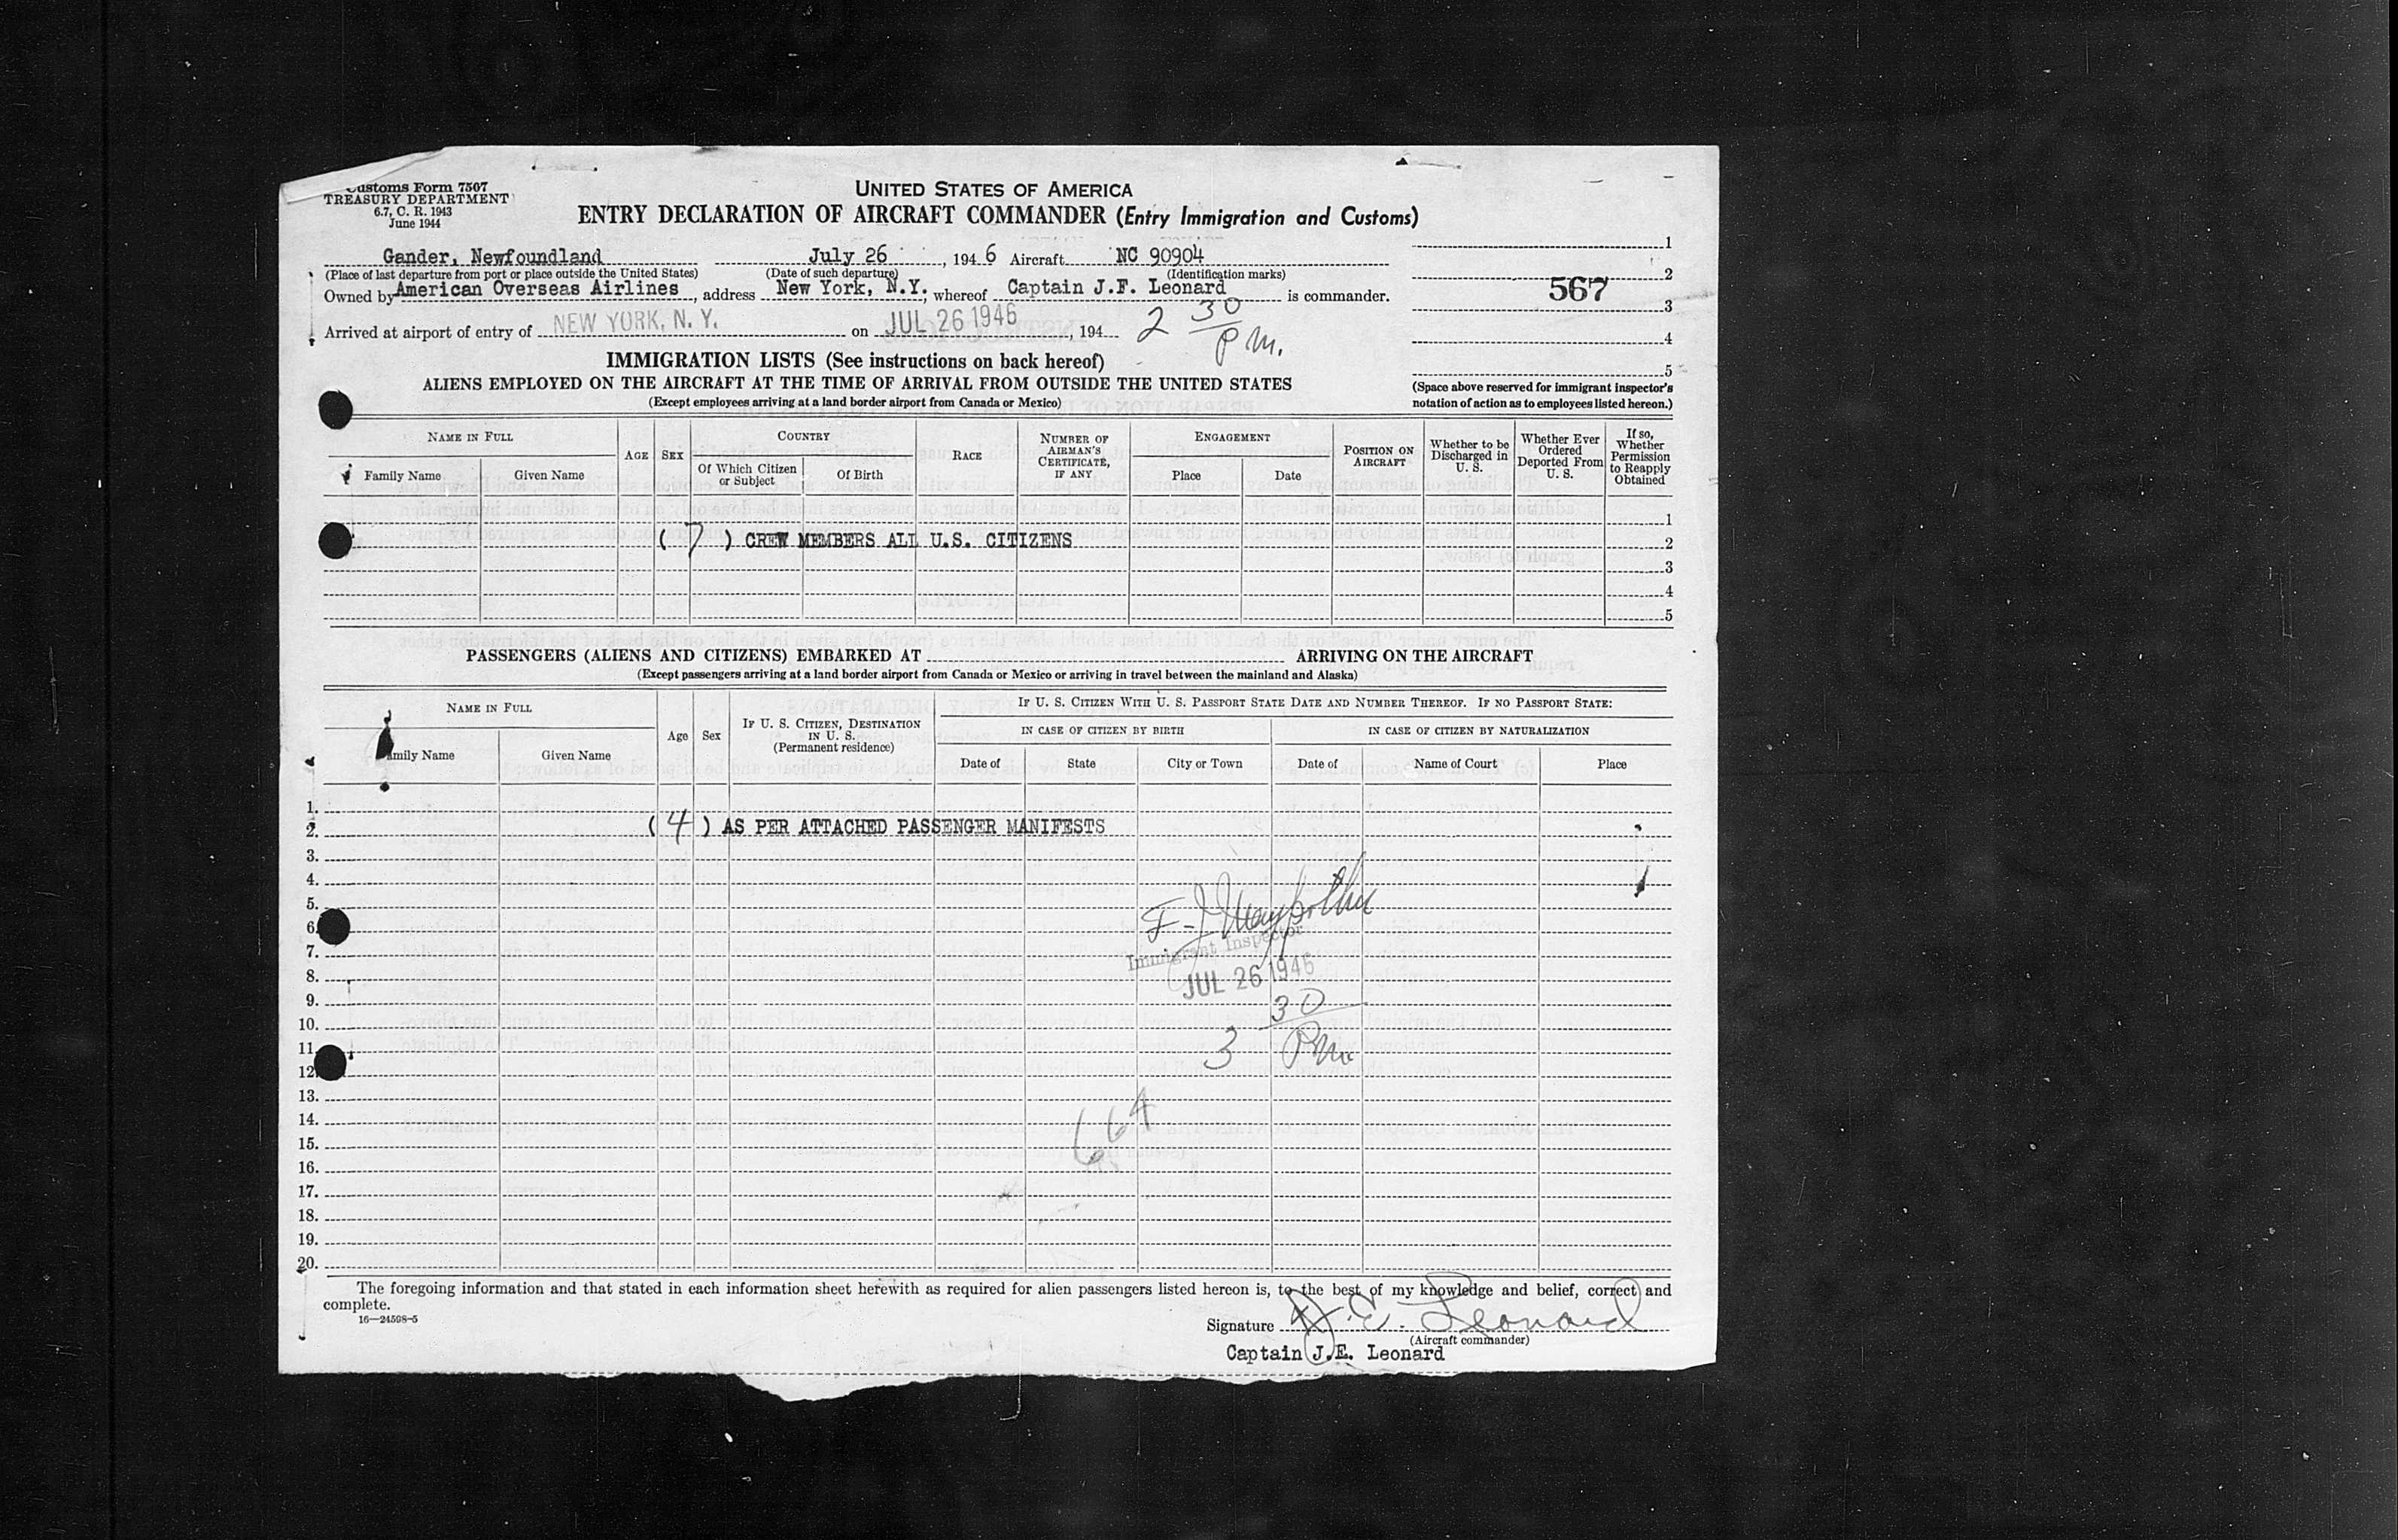 Customs Form 7507
TREASURY DEPARTMENT
6.7, C. R. 1943
June 1944
UNITED STATES OF AMERICA
ENTRY DECLARATION OF AIRCRAFT COMMANDER (Entry Immigration and Customs)
Gander, Newfoundland July 26, 1946 Aircraft NC 90904
(Place of last departure from port or place outside the United States) (Date of such departure) (Identification marks)
Owned by American Overseas Airlines, address New York, N.Y. whereof Captain J.F. Leonard is commander.
Arrived at airport of entry of NEW YORK, N. Y. on JUL 26 1946, 194 2 30 P M.
1
2
567
3
4
5
(Space above reserved for immigrant inspector's
notation of action as to employees listed hereon.)
IMMIGRATION LISTS (See instructions on back hereof)
ALIENS EMPLOYED ON THE AIRCRAFT AT THE TIME OF ARRIVAL FROM OUTSIDE THE UNITED STATES
(Except employees arriving at a land border airport from Canada or Mexico)
NAME IN FULL
Family Name
Given Name
AGE
SEX
COUNTRY
Of Which Citizen
or Subject
Of Birth
RACE
NUMBER OF
AIRMAN'S
CERTIFICATE,
IF ANY
ENGAGEMENT
Place
Date
POSITION ON
AIRCRAFT
Whether to be
Discharged in
U. S.
Whether Ever
Ordered
Deported From
U. S.
If so,
Whether
Permission
to Reapply
Obtained
1
( 7 ) CREW MEMBERS ALL U.S. CITIZENS 2
3
4
5
PASSENGERS (ALIENS AND CITIZENS) EMBARKED AT ARRIVING ON THE AIRCRAFT
(Except passengers arriving at a land border airport from Canada or Mexico or arriving in travel between the mainland and Alaska)
NAME IN FULL
Family Name
Given Name
Age
Sex
IF U. S. CITIZEN, DESTINATION
IN U. S.
(Permanent residence)
IF U. S. CITIZEN WITH U. S. PASSPORT STATE DATE AND NUMBER THEREOF. IF NO PASSPORT STATE:
IN CASE OF CITIZEN BY BIRTH
IN CASE OF CITIZEN BY NATURALIZATION
Date of
State
City or Town
Date of
Name of Court
Place
1.
2. ( 4 ) AS PER ATTACHED PASSENGER MANIFESTS
3.
4.
5.
6.
7. Immigrant Inspector
8. JUL 26 1946
9.
10. 30
11. 3 PM
12.
13.
14. 664
15.
16.
17.
18.
19.
20.
The foregoing information and that stated in each information sheet herewith as required for alien passengers listed hereon is, to the best of my knowledge and belief, correct and
complete.
16—24598-5
Signature J. E. Leonard
(Aircraft commander)
Captain J.E. Leonard